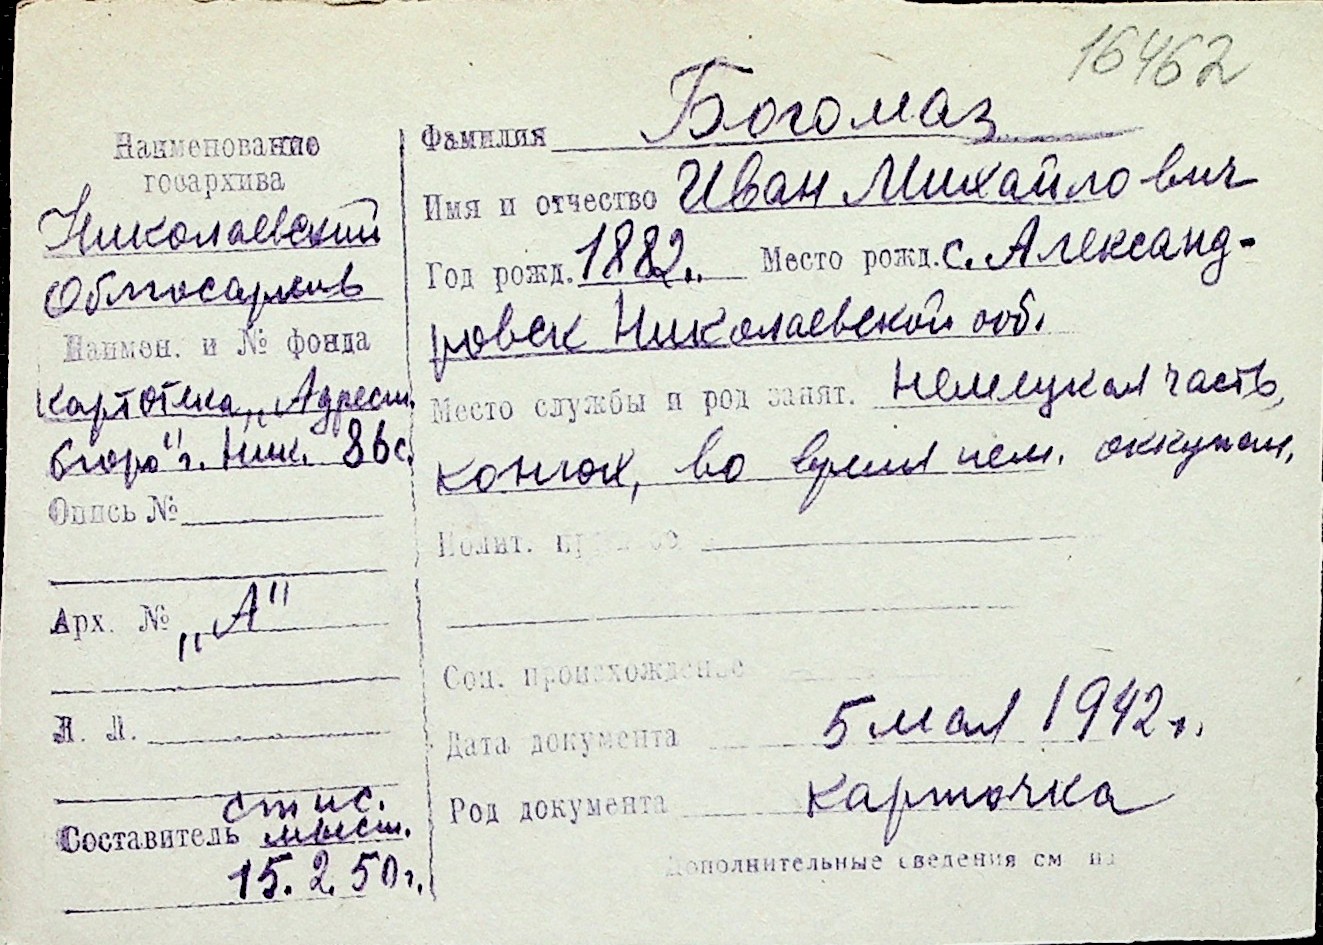 16462
Наименование
госархива
Николаевский
Облгосархив
Наимен. и № фонда
картотека „Адресн.
бюро" г. Ник. 86с.
Опись №
Арх. № „А"
Л. Л.
Составитель
15. 2. 50 г.
Фамилия Богомаз
Имя и отчество Иван Михайлович
Год рожд. 1882 г. Место рожд. с. Александ-
ровск Николаевской обл.
Место службы и род занят. немецкая часть,
конюх, во время нем. оккупац.
Полит.
Соц. происхождение
Дата документа 5 мая 1942 г.
Род документа карточка
Дополнительные сведения см